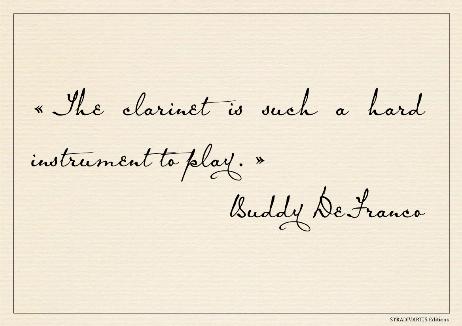 « The clarinet is such a hard
instrument to play. »
Buddy DeFranco
STRADIVARIUS Editions